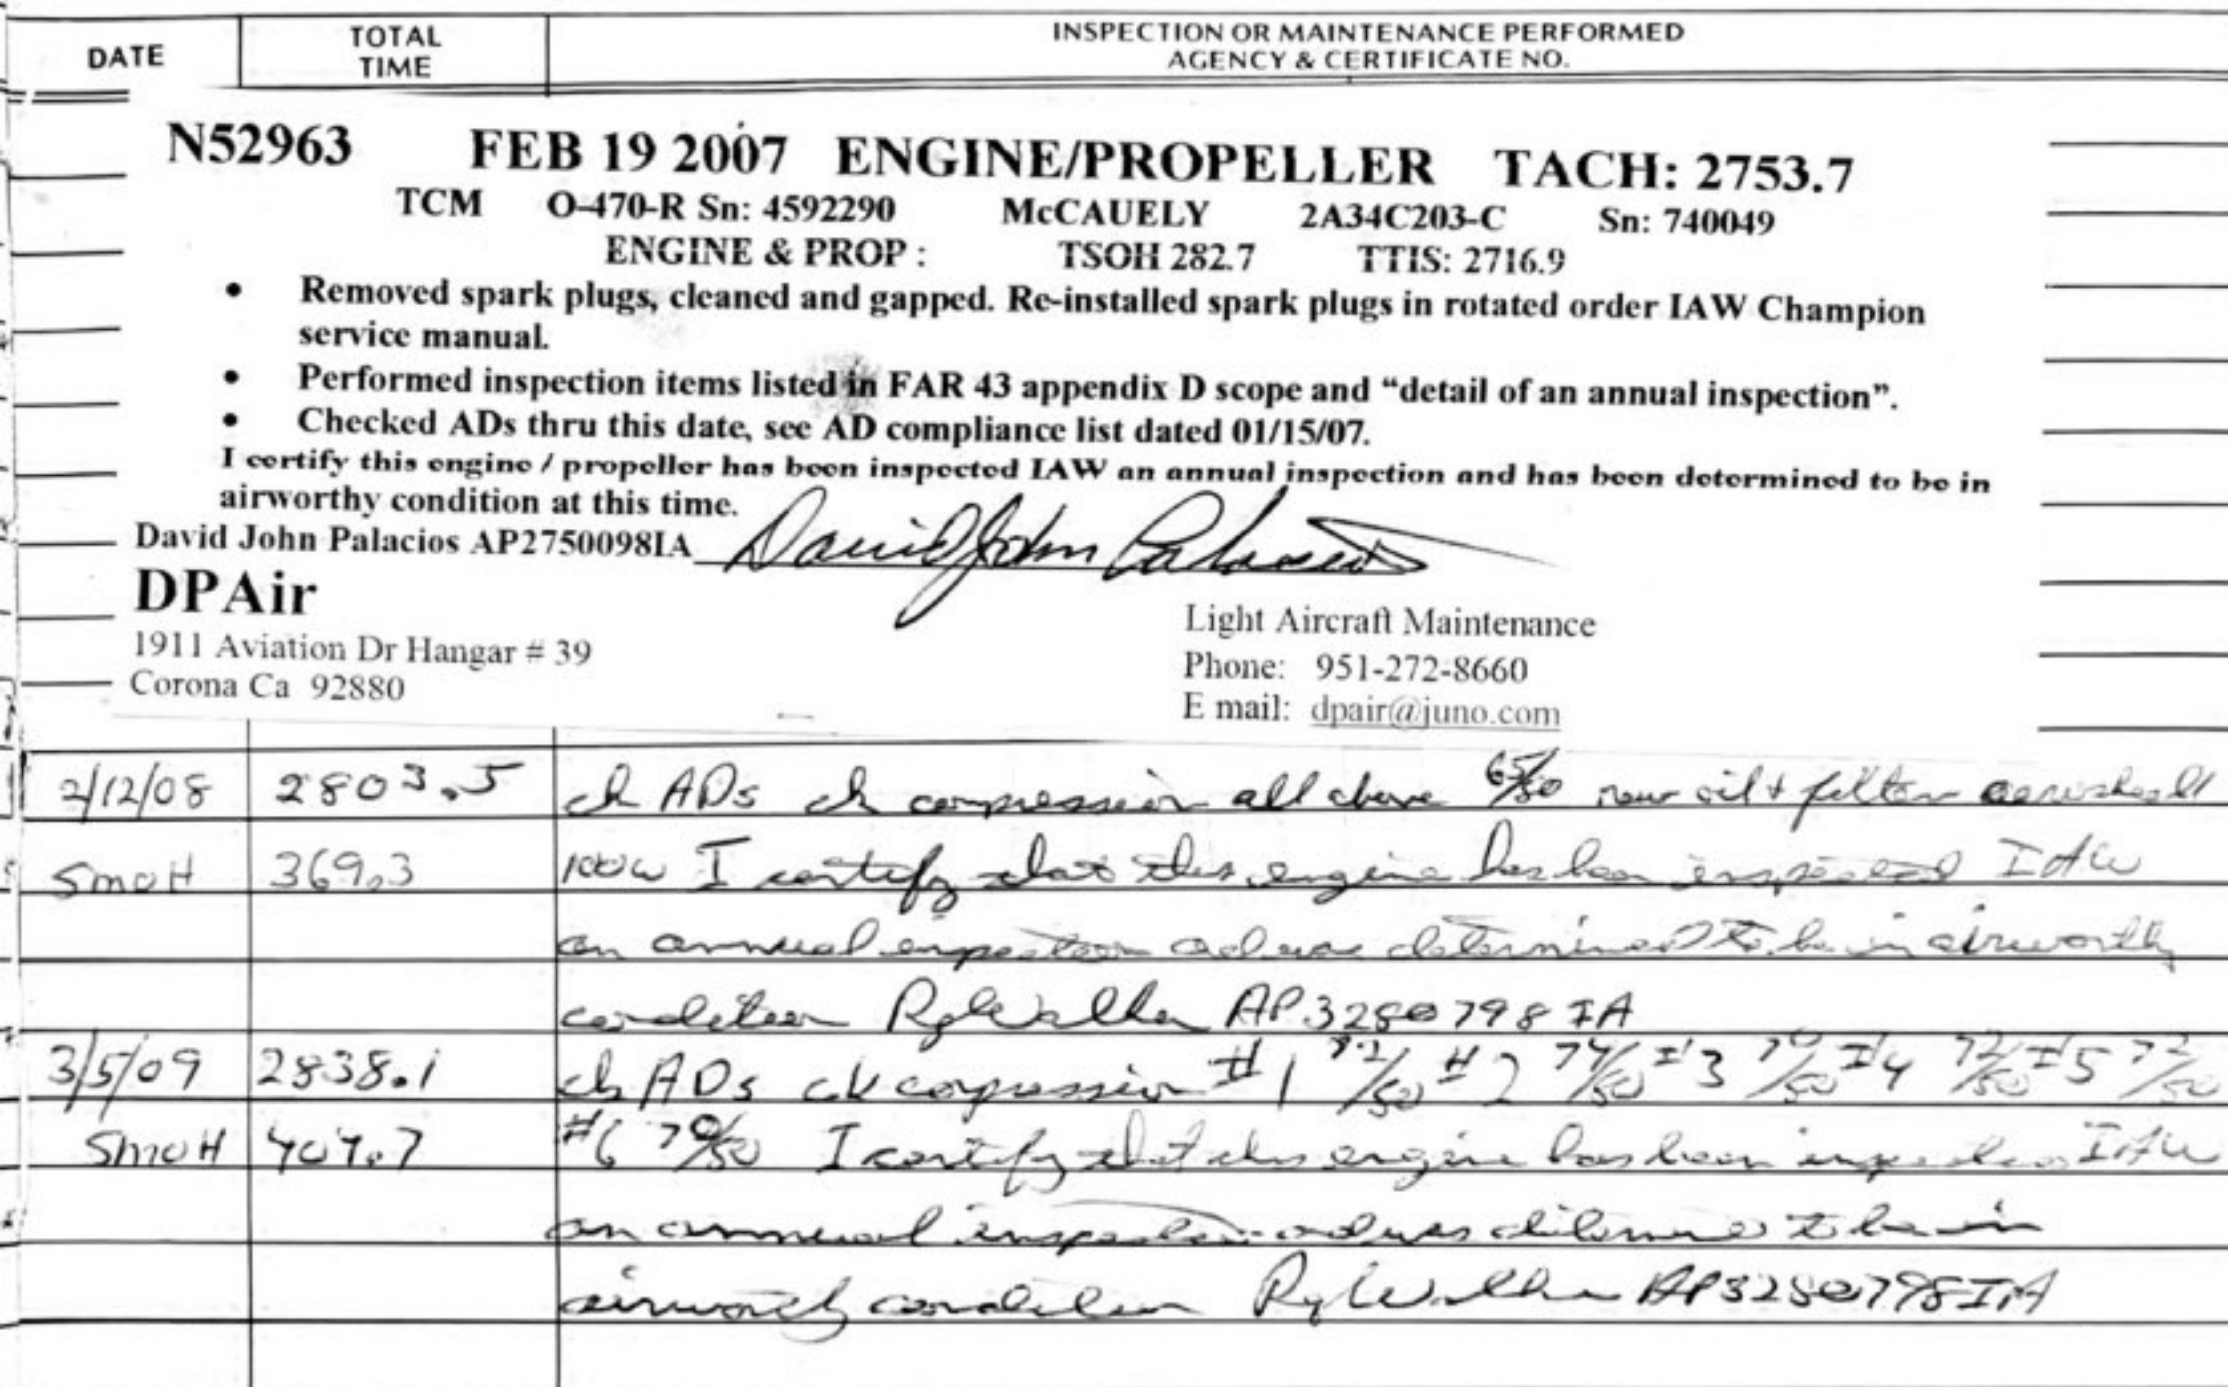 DATE TOTAL TIME INSPECTION OR MAINTENANCE PERFORMED AGENCY & CERTIFICATE NO.
N52963 FEB 19 2007 ENGINE/PROPELLER TACH: 2753.7
TCM O-470-R Sn: 4592290 McCAUELY 2A34C203-C Sn: 740049
ENGINE & PROP : TSOH 282.7 TTIS: 2716.9
• Removed spark plugs, cleaned and gapped. Re-installed spark plugs in rotated order IAW Champion
service manual.
• Performed inspection items listed in FAR 43 appendix D scope and “detail of an annual inspection”.
• Checked ADs thru this date, see AD compliance list dated 01/15/07.
I certify this engine / propeller has been inspected IAW an annual inspection and has been determined to be in
airworthy condition at this time.
David John Palacios AP2750098IA David John Palacios
DPAir
Light Aircraft Maintenance
1911 Aviation Dr Hangar # 39
Phone: 951-272-8660
Corona Ca 92880
E mail: dpair@juno.com
2/12/08 2803.5 ch ADs ch compression all above 65/80 new oil + filter aeroshell
SMOH 369.3 100W I certify that this engine has been inspected IAW
an annual inspection and was determined to be in airworthy
condition AP3280798IA
3/5/09 2838.1 ch ADs ck compression #1 72/80 #2 74/80 #3 70/80 #4 72/80 #5 72/80
SMOH 404.7 #6 70/80 I certify that this engine has been inspected IAW
an annual inspection and was determined to be in
airworthy condition AP3280798IA